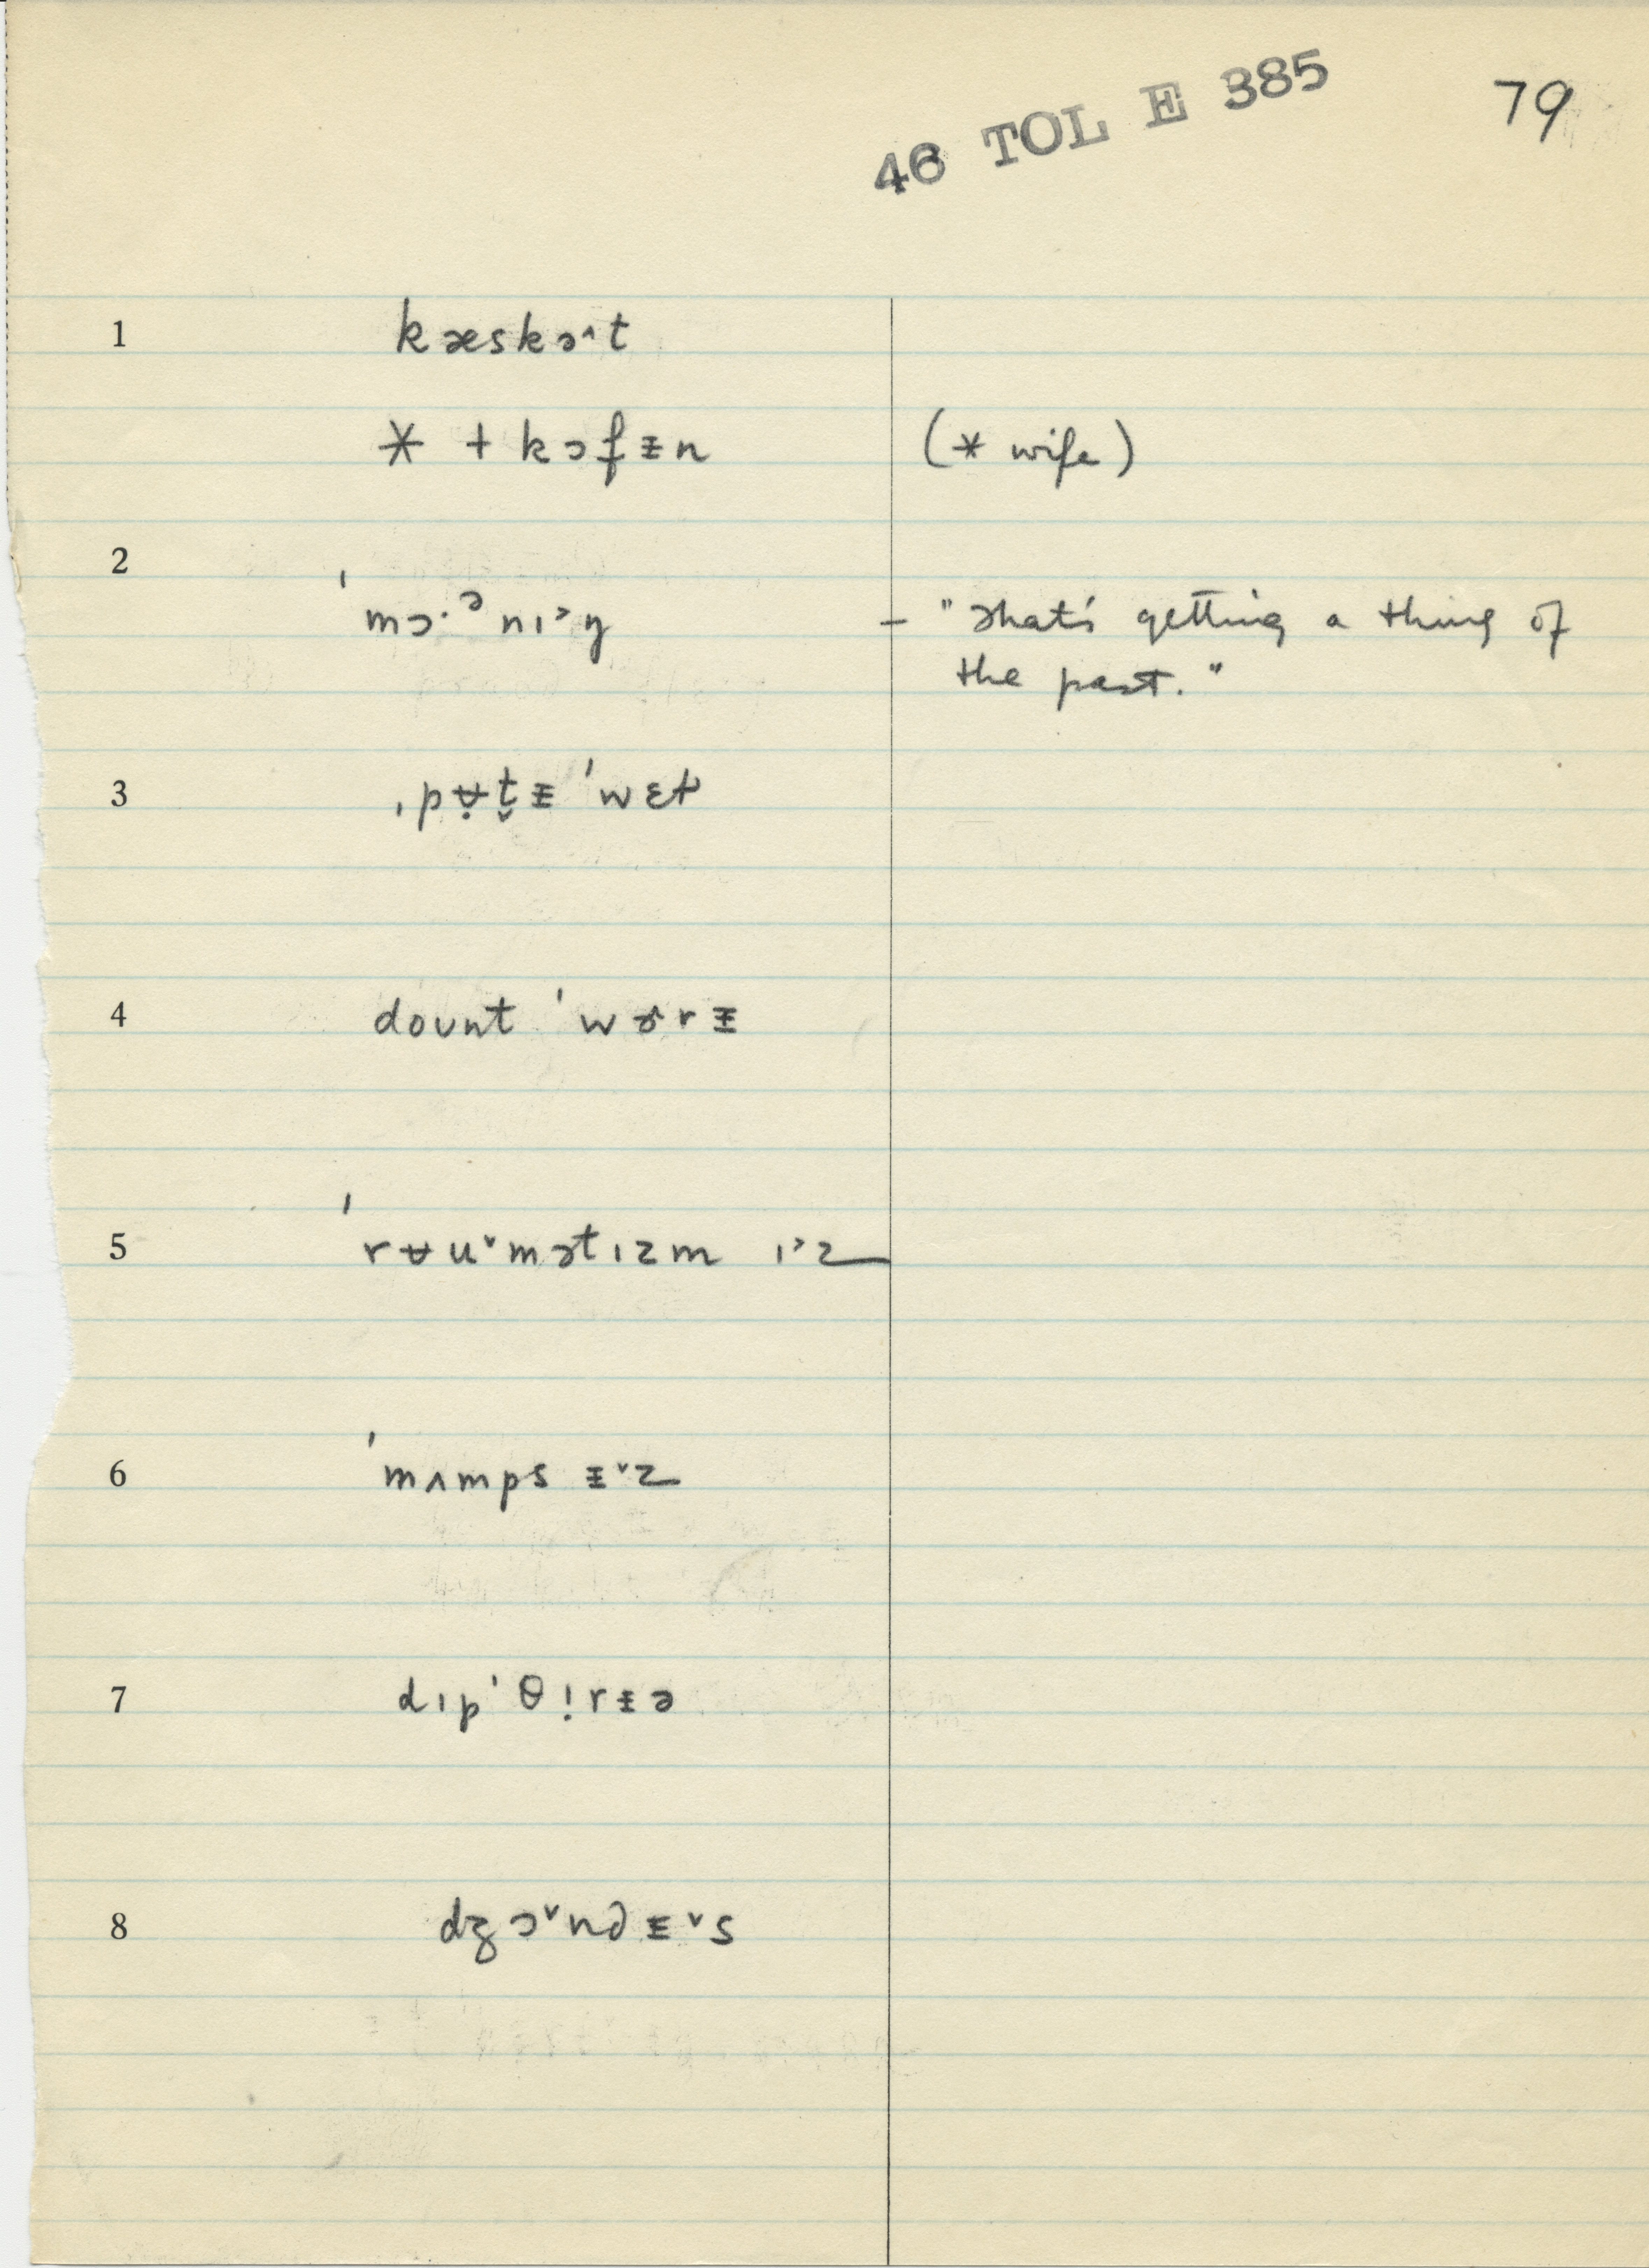 46 TOL E 385
79
1 kæskə^t
* + kɔfɪ̵n (* wife)
2
ˈmɔ·ᵊnɪ˃ŋ – "That's getting a thing of
the past."
3 ˌpʉ̣t̬ɪ̵ ˈwɛt
4 dount ˈwɚrɪ̵
5
ˈrʉu˅mətɪzm ɪ˃z
6
ˈmʌmps ɪ̵˅z
7 dɪpˈθɪ̣rɪ̵ə
8 dʒɔ˅ndɪ̵˅s